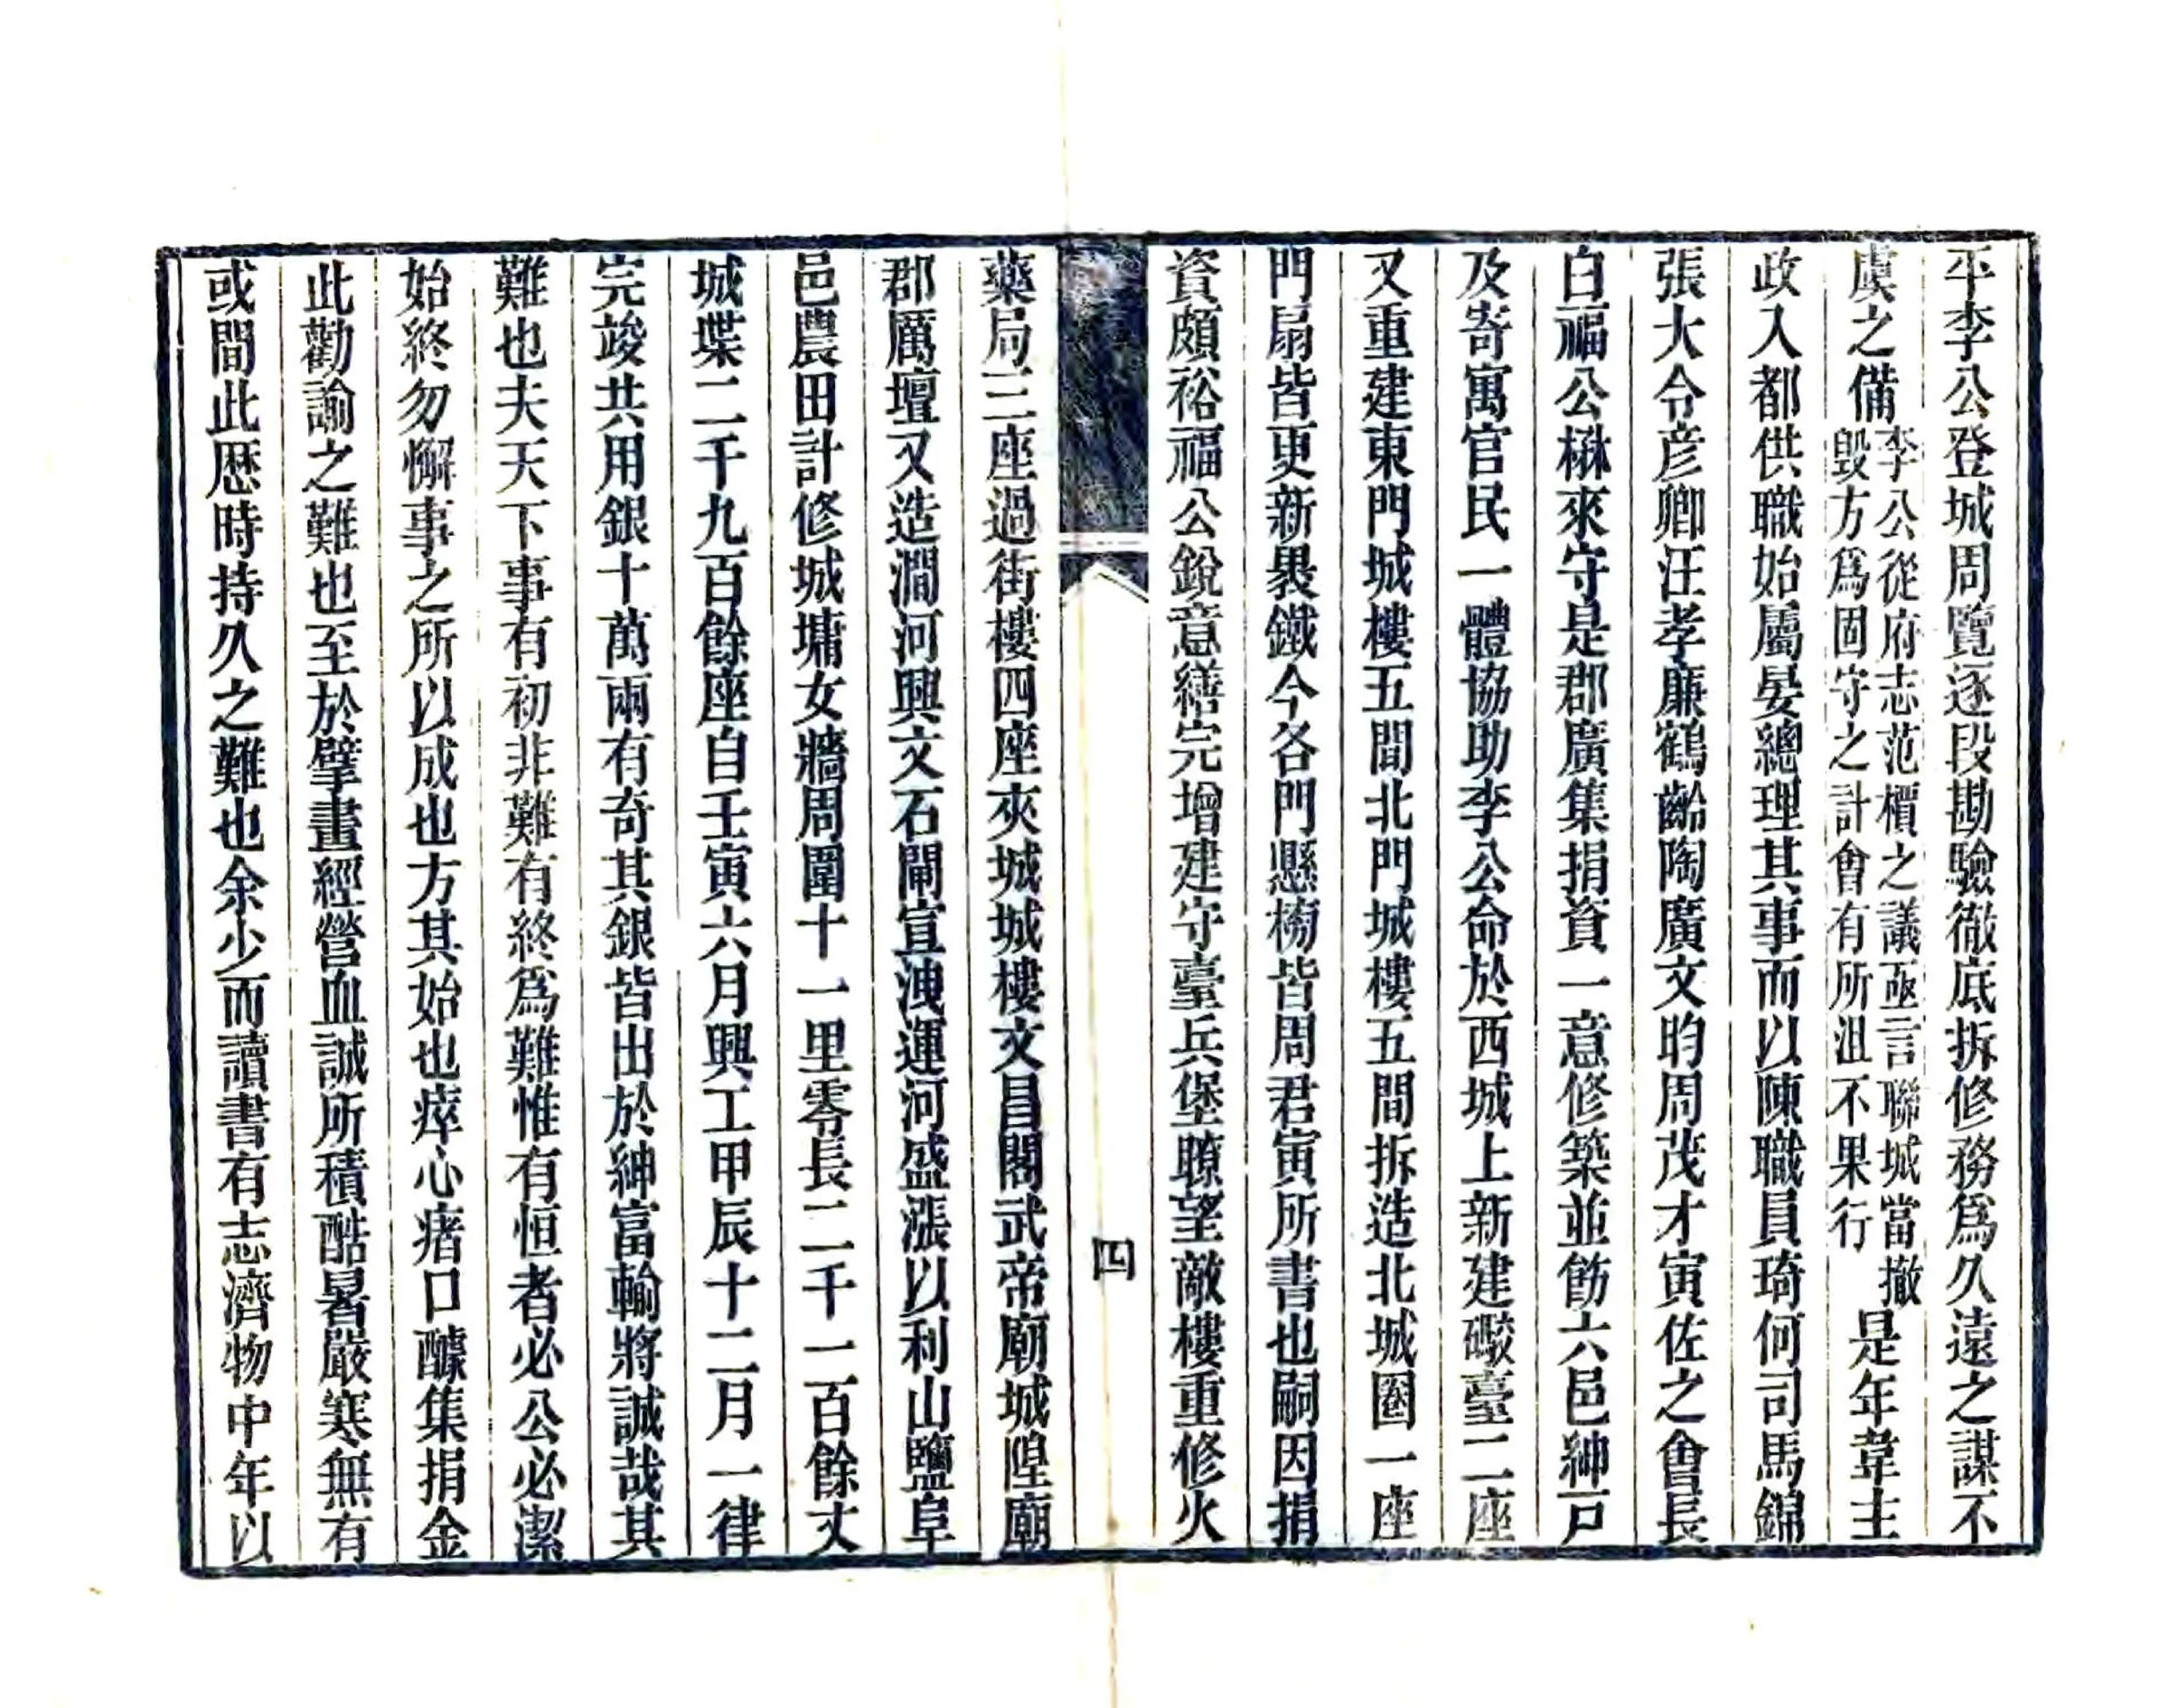 平李公登城周覽逐段勘驗徹底拆修務爲久遠之謀不
虞之備
李公從府志范檟之議亟言聯城當撤
毀方爲固守之計會有所沮不果行
是年韋主
政入都供職始屬晏總理其事而以陳職員琦何司馬錦
張大令彦卿汪孝廉鶴齡陶廣文昀周茂才寅佐之會長
白福公楙來守是郡廣集捐資一意修築並飭六邑紳戸
及寄寓官民一體協助李公命於西城上新建礮臺二座
又重建東門城樓五間北門城樓五間拆造北城圈一座
門扇皆更新褁鐵今各門懸榜皆周君寅所書也嗣因捐
資頗裕福公銳意繕完增建守臺兵堡瞭望敵樓重修火
四
藥局三座過街樓四座夾城城樓文昌閣武帝廟城隍廟
郡厲壇又造澗河興文石閘宣洩運河盛漲以利山鹽阜
邑農田計修城墉女牆周圍十一里零長二千一百餘丈
城堞二千九百餘座自壬寅六月興工甲辰十二月一律
完竣共用銀十萬兩有奇其銀皆出於紳富輸將誠哉其
難也夫天下事有初非難有終爲難惟有恒者必公必潔
始終勿懈事之所以成也方其始也瘁心瘏口醵集捐金
此勸諭之難也至於擘畫經營血誠所積酷暑嚴寒無有
或間此歴時持久之難也余少而讀書有志濟物中年以